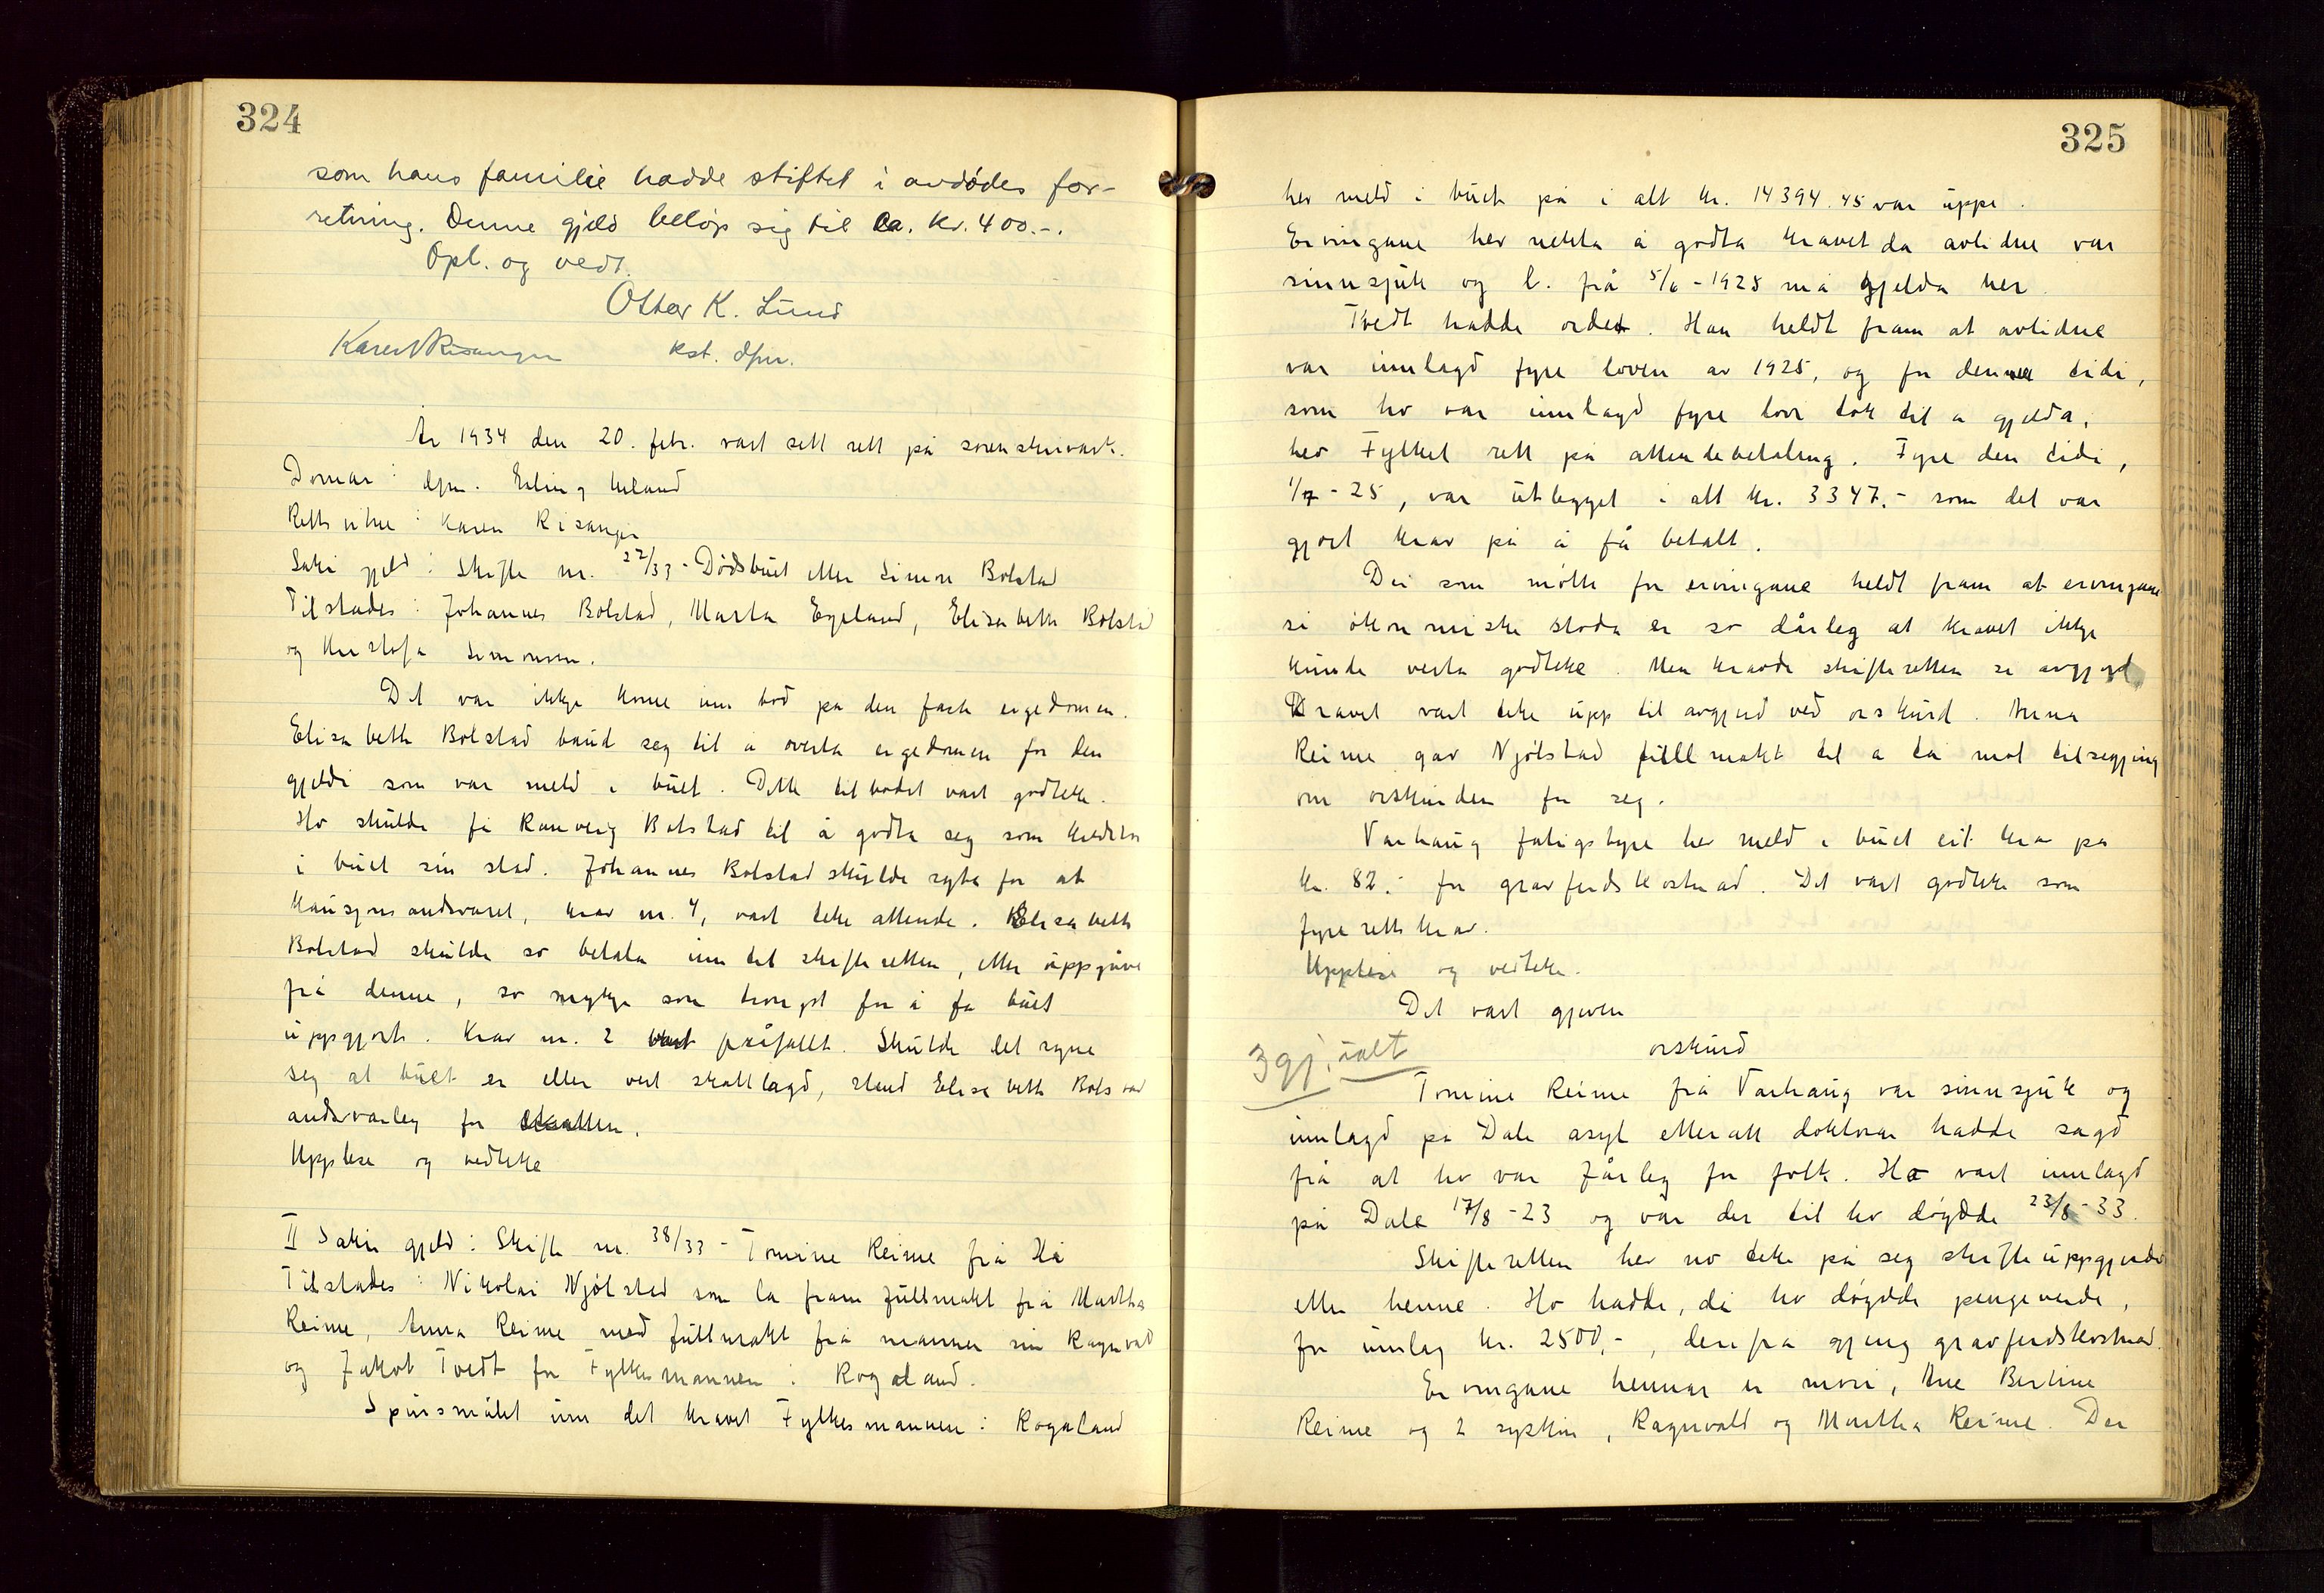 324
som hans familie hadde stiftet i avdødes for-
retning. Denne gjeld beløp sig til ca. kr. 400.-.
Opl. og vedt.
Otter K. Lund
Karen Risanger kst. dfm.
År 1934 den 20. febr. vart sett rett på sorenskrivark.
Domar: dfm. Erling Meland
Rettsvitne: Karen Risanger
Saki gjeld: Skifte nr. 22/33 - Dødsbuet etter Simon Bolstad
Tilstades: Johannes Bolstad, Marta Egeland, Elisabeth Bolstad
og Kristofa Simonsen.
Det var ikkje kome inn bod på den faste eigedomen.
Elisabeth Bolstad baud seg til å overta eigedomen for den
gjeldi som var meld i buet. Dette tilbodet vart godteke.
Ho skulde få Ranveig Bolstad til å godta seg som kreditor
i buet sin stad. Johannes Bolstad skulde syta for at
kausjonsandsvaret, krav nr. 4, vart teke attende. Elisabeth
Bolstad skulde so betala inn til skifteretten, etter uppgåve
frå denne, so mykje som trongst for å få buet
uppgjort. Krav nr. 2 vart fråfallt. Skulde det syne
seg at buet er eller vert skattlagd, stend Elisabeth Bolstad
andsvarleg for skatten.
Upplese og vedteke
II Saki gjeld: Skifte nr. 38/33 - Tomine Reime frå Hå
Tilstades: Nikolai Njølstad som la fram fullmakt frå Martha
Reime, Anna Reime med fullmakt frå mannen sin Ragnvald
og Jakob Tvedt for Fylkesmannen i Rogaland.
Spursmålet um det kravet Fylkesmannen i Rogaland
325
hev meld i buet på i alt kr. 14394.45 var uppe.
Ervingane hev nekta å godta kravet da avlidne var
sinnsjuk og l. frå 5/6 - 1925 må gjelda her.
Tvedt hadde ordet. Han heldt fram at avlidne
var innlagd fyre loven av 1925, og for denne tidi,
som ho var innlagd fyre lovi tok til å gjelda,
hev Fylket rett på attendebetaling. Fyre den tidi,
1/7 - 25, var utlegget i alt kr. 3347.- som det var
gjort krav på å få betalt.
Dei som møtte for ervingane heldt fram at ervingane
si økonomiske stoda er so dårleg at kravet ikkje
kunde verta godteke. Men kravde skifteretten si avgjerd
Kravet vart teke upp til avgjerd ved orskurd. Anna
Reime gav Njølstad fullmakt til å ta mot tilsegjing
om orskurden for seg.
Varhaug fatigstyre hev meld i buet eit krav på
kr. 82.- for gravferdskostnad. Det vart godteke som
fyrerettskrav.
Upplese og vedteke.
Det vart gjeven
orskurd
3 gj. ialt
Tomine Reime frå Varhaug var sinnsjuk og
innlagd på Dale asyl etter at doktoren hadde sagd
frå at ho var fårleg for folk. Ho vart innlagd
på Dale 17/8 - 23 og var der til ho døydde 23/8 - 33.
Skifteretten hev no teke på seg skifteuppgjerdi
etter henne. Ho hadde, då ho døydde pengeverde,
for innlag kr. 2500,-, derifrå gjeng gravferdskostnad.
Ervingane hennar er mori, Ane Bertine
Reime og 2 syskin, Ragnvald og Martha Reime. Dei